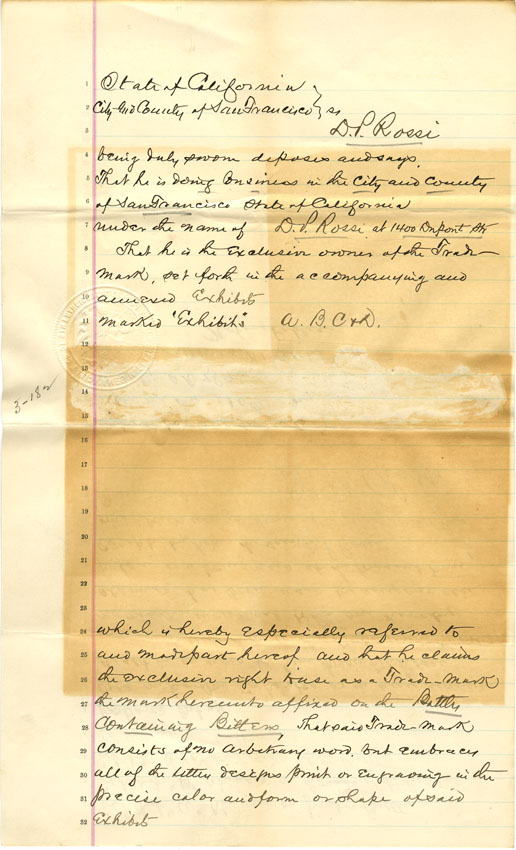 1 State of California
2 City And County of San Francisco } ss
3 D. P. Rossi
4 being duly sworn deposes and says,
5 That he is doing business in the City and County
6 of San Francisco State of California
7 under the name of D. P. Rossi at 1400 Dupont Str
8 That he is the Exclusive owner of the Trade-
9 Mark, set forth in the accompanying and
10 annexed Exhibits
11 marked "Exhibits" A. B. C & D.
12
13
3-182
14
15
16
17
18
19
20
21
22
23
24 which is hereby especially referred to
25 and made part hereof and that he claims
26 the exclusive right to use as a Trade-Mark
27 the mark hereunto affixed on the Bottles
28 Containing Bitters, That said Trade-Mark
29 consists of no arbitrary word. but embraces
30 all of the letters designs print or Engraving in the
31 precise color and form or shape of said
32 Exhibits